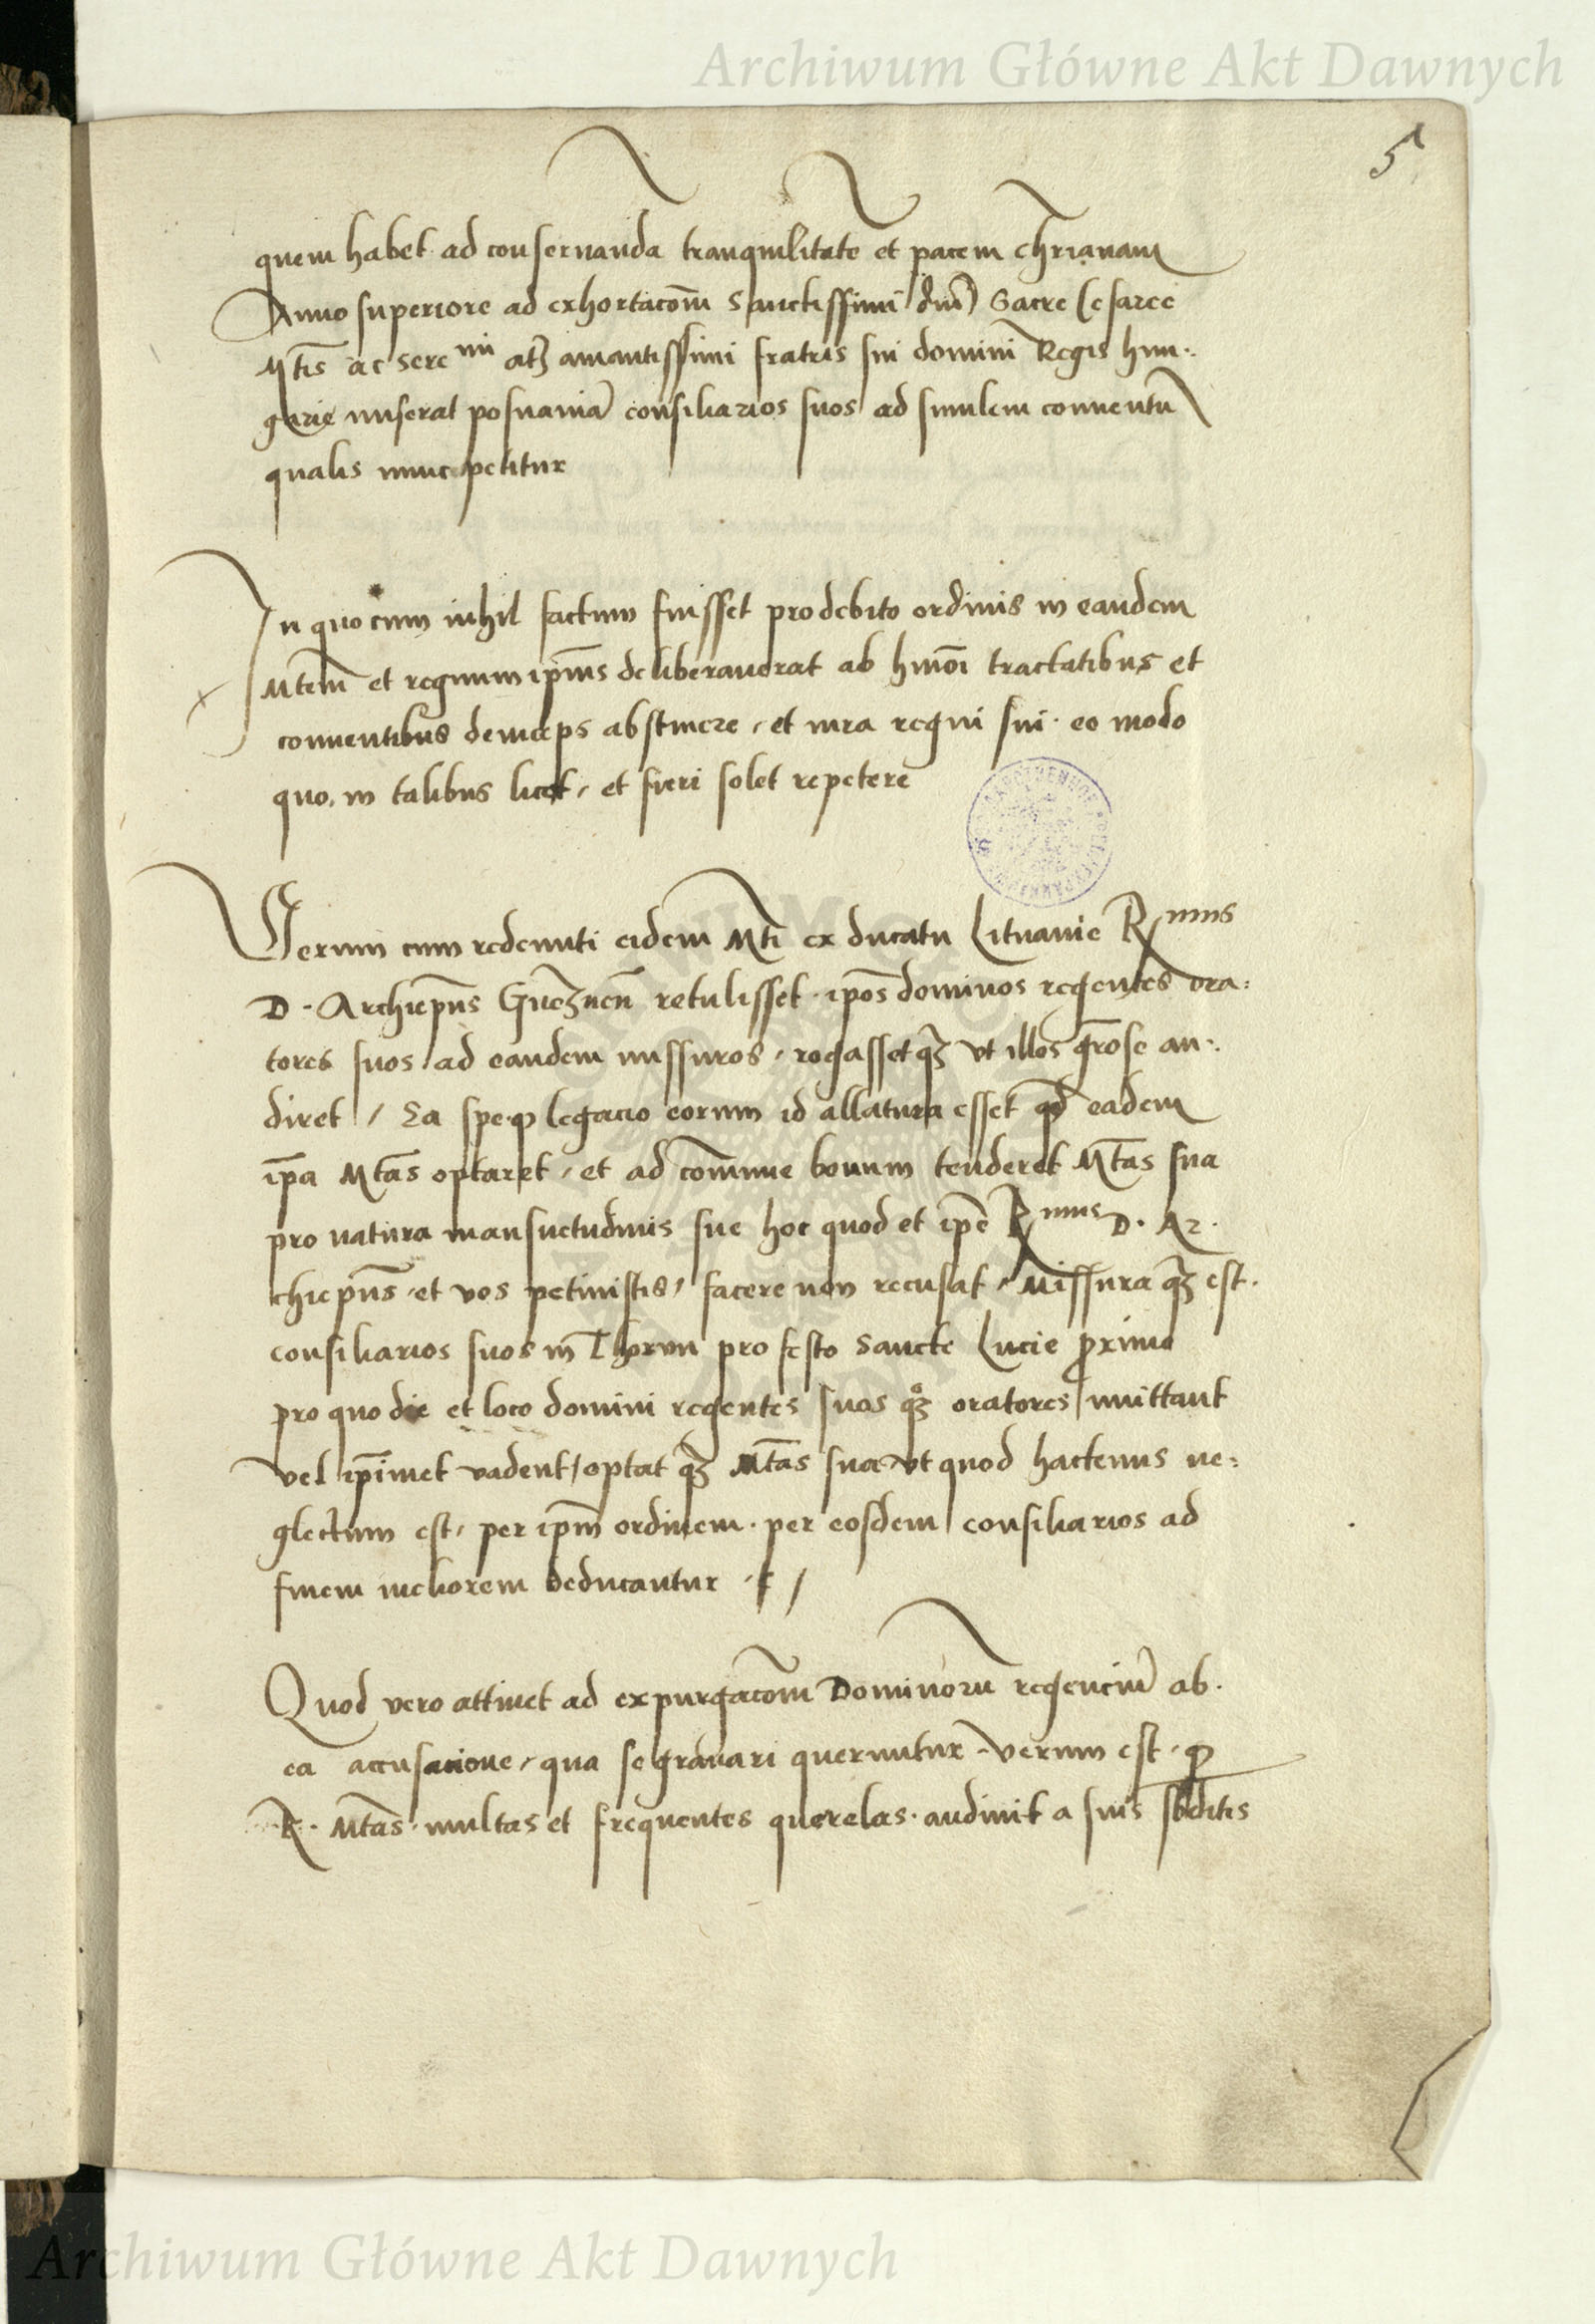 Archiwum Główne Akt Dawnych
5
quem habet ad conseruandā tranquilitatē et pacem chrīanam
Anno superiore ad exhortacōm Sanctissimi dnī Sacre Cesaree
Mtīs ac sereᵐⁱ atqȝ amantissimi fratris sui domini Regis hun:
garie miserat posnaniā consiliarios suos ad similem conuentū
qualis nunc petitur
In quo cum nihil factum fuisset pro debito ordinis in eandem
Mtēm et regnum ipīus deliberauerat ab hmōi tractatibus et
conuentibus deinceps abstinere / et iura regni sui · eo modo
quo in talibus licet / et fieri solet repetere
Verum cum redeunti eidem Mtī ex ducatu Lituanie Rᵐᵘˢ
D · Archiepūs Gneȝnen̄ retulisset · ipōs dominos regentes ora:
tores suos ad eandem missuros / rogassetqȝ vt illos grōse au:
diret / Ea spe ꝙ legacio eorum id allatura esset qd̄ eadem
ipā Mtās optaret / et ad cōmune bonum tenderet Mtās sua
pro natura mansuetudinis sue hoc quod et ipē Rᵐᵘˢ D · Ar·
chiepūs · et vos petiuistis / facere non recusat / Missuraqȝ est ·
consiliarios suos in Thorun pro festo Sancte Lucie proximo
pro quo die et loco domini regentes suos qȝ oratores / mittant
vel ipīmet vadent / optat qȝ Mtās sua vt quod hactenus ne:
glectum est / per ipm̄ ordinem · per eosdem consiliarios ad
finem meliorem deducantur · /
Quod vero attinet ad expurgacōm Dominorū regenciū ab ·
ea accusacione / qua se grauari queruntur · verum est · ꝙ
R · Mtās · multas et frequentes querelas · audiuit a suis sbditis
Archiwum Główne Akt Dawnych